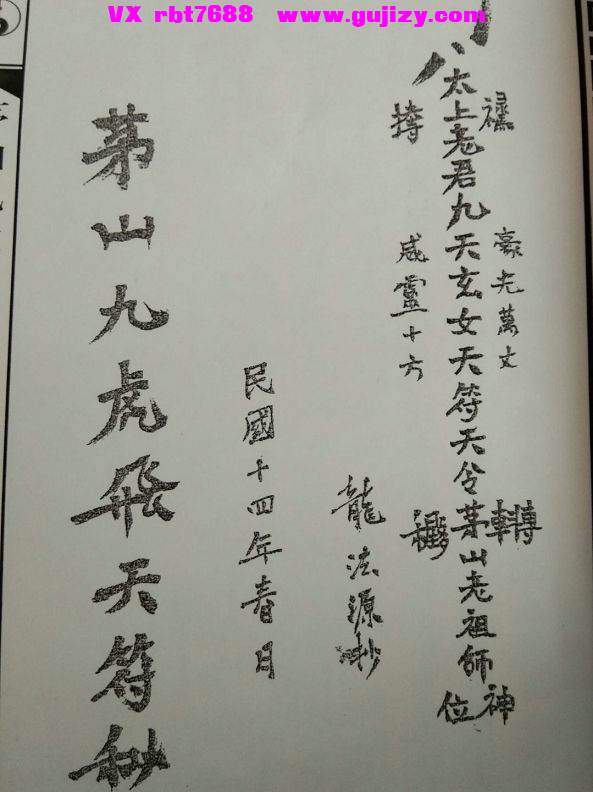 VX rbt7688 www.gujizy.com
太上老君九天玄女天符天令茅山老祖師神位
豪光萬丈
咸靈十方
龍法源抄
民國十四年春日
茅山九虎飛天符秘